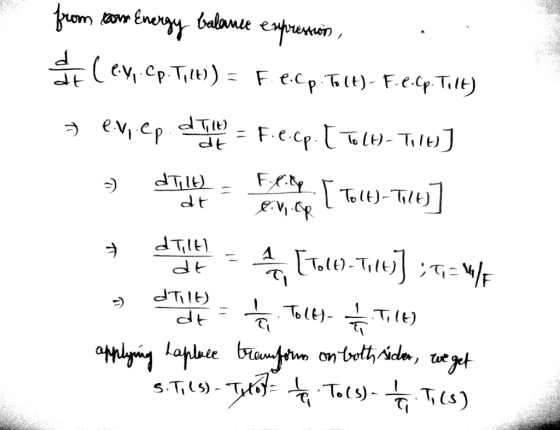 from Energy balance expression,
d/dt (ρ.V₁.Cp.T₁(t)) = F.ρ.Cp.T₀(t) - F.ρ.Cp.T₁(t)
⇒ ρ.V₁.Cp. dT₁(t)/dt = F.ρ.Cp. [T₀(t) - T₁(t)]
⇒ dT₁(t)/dt = F.ρ.Cp/ρ.V₁.Cp [T₀(t) - T₁(t)]
⇒ dT₁(t)/dt = 1/τ₁ [T₀(t) - T₁(t)] ; τ₁ = V₁/F
⇒ dT₁(t)/dt = 1/τ₁ . T₀(t) - 1/τ₁ . T₁(t)
applying Laplace transform on both sides, we get
s.T₁(s) - T₁(0) = 1/τ₁ . T₀(s) - 1/τ₁ . T₁(s)